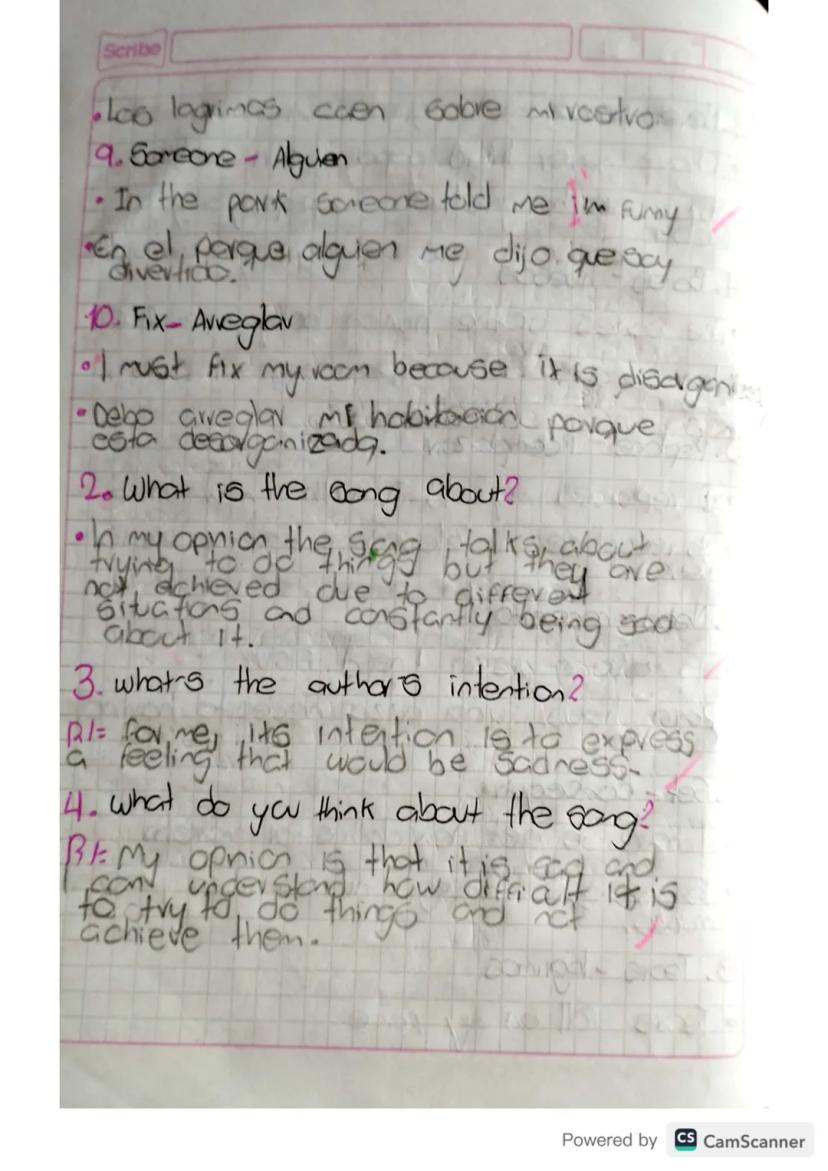 Scribe
• Las lagrimas caen sobre mi rostro
9. Someone - Alguien
• In the park someone told me i'm funny
• En el parque alguien me dijo que soy
divertido.
10. Fix - Arreglar
• I must fix my room because it is disorgani
• Debo arreglar mi habitación porque
esta desorganizada.
2. What is the song about?
• In my opnion the song talks about
trying to do things but they are
not achieved due to different
situations and constantly being sad
about it.
3. what's the author's intention?
R/= for me, its intention is to express
a feeling that would be sadness.
4. What do you think about the song?
R/= My opnion is that it is sad and
I can understand how difficult it is
to try to do things and not
achieve them.
Powered by CS CamScanner